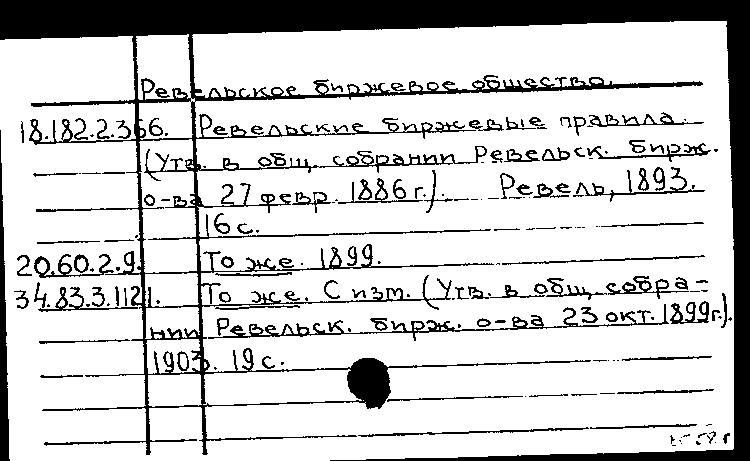 Ревельское биржевое общество.
18.182.2.366. Ревельские биржевые правила.
(Утв. в общ. собрании Ревельск. бирж.
о-ва 27 февр. 1886 г.). Ревель, 1893.
16 с.
20.60.2.9. То же. 1899.
34.83.3.1121. То же. С изм. (Утв. в общ. собра-
нии Ревельск. бирж. о-ва 23 окт. 1899 г.).
1903. 19 с.